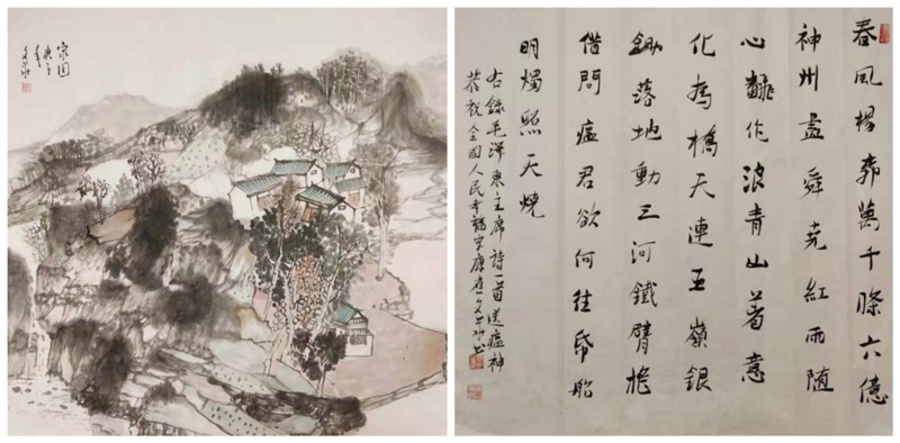 家园
庚子
春風楊柳萬千條六億
神州盡舜堯紅雨隨
心翻作浪青山着意
化為橋天連五嶺銀
鋤落地動三河鐵臂搖
借問瘟君欲何往帋船
明燭照天燒
右錄毛澤東主席詩一首送瘟神
恭祝全國人民幸福安康